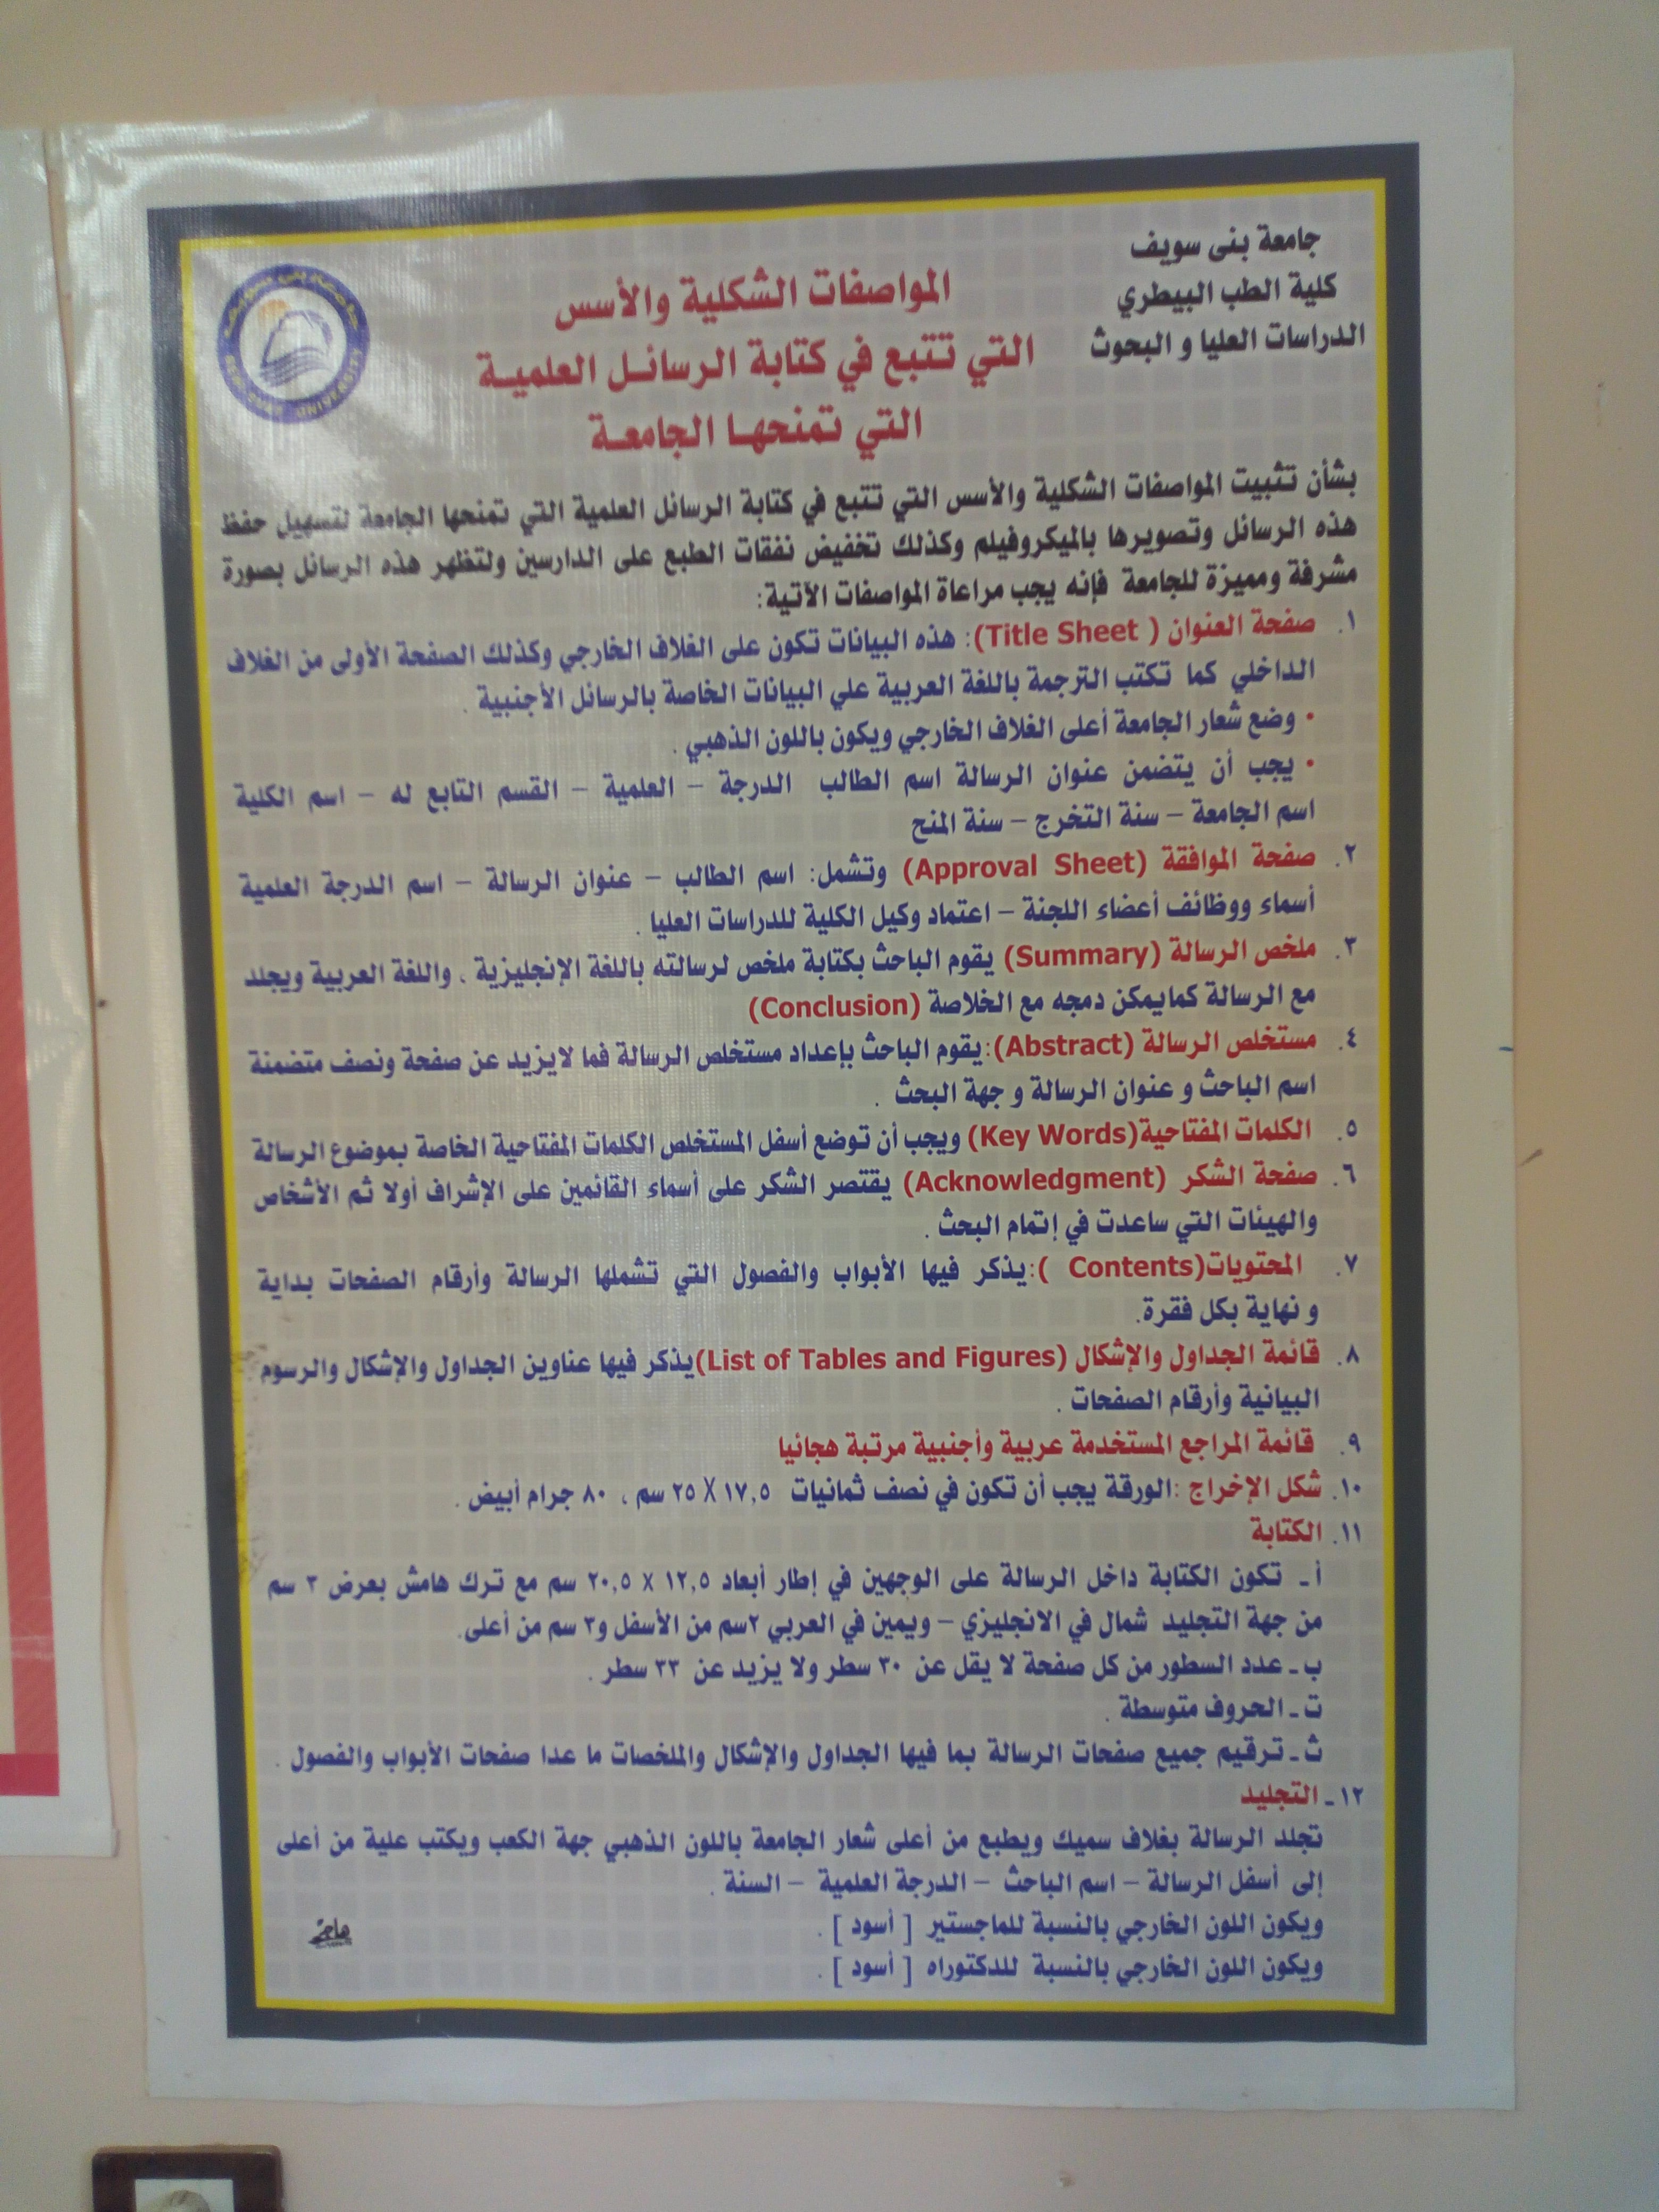 جامعة بنى سويف
كلية الطب البيطري
الدراسات العليا و البحوث
المواصفات الشكلية والأسس
التي تتبع في كتابة الرسائل العلمية
التي تمنحها الجامعة
بشأن تثبيت المواصفات الشكلية والأسس التي تتبع في كتابة الرسائل العلمية التي تمنحها الجامعة لتسهيل حفظ
هذه الرسائل وتصويرها بالميكروفيلم وكذلك تخفيض نفقات الطبع على الدارسين ولتظهر هذه الرسائل بصورة
مشرفة ومميزة للجامعة فإنه يجب مراعاة المواصفات الآتية:
١. صفحة العنوان ( Title Sheet): هذه البيانات تكون على الغلاف الخارجي وكذلك الصفحة الأولى من الغلاف
الداخلي كما تكتب الترجمة باللغة العربية علي البيانات الخاصة بالرسائل الأجنبية .
• وضع شعار الجامعة أعلى الغلاف الخارجي ويكون باللون الذهبي .
• يجب أن يتضمن عنوان الرسالة اسم الطالب الدرجة – العلمية – القسم التابع له – اسم الكلية
اسم الجامعة – سنة التخرج – سنة المنح
٢. صفحة الموافقة (Approval Sheet) وتشمل: اسم الطالب – عنوان الرسالة – اسم الدرجة العلمية
أسماء ووظائف أعضاء اللجنة – اعتماد وكيل الكلية للدراسات العليا .
٣. ملخص الرسالة (Summary) يقوم الباحث بكتابة ملخص لرسالته باللغة الإنجليزية ، واللغة العربية ويجلد
مع الرسالة كمايمكن دمجه مع الخلاصة (Conclusion)
٤. مستخلص الرسالة (Abstract):يقوم الباحث بإعداد مستخلص الرسالة فما لايزيد عن صفحة ونصف متضمنة
اسم الباحث و عنوان الرسالة و جهة البحث .
٥. الكلمات المفتاحية(Key Words) ويجب أن توضع أسفل المستخلص الكلمات المفتاحية الخاصة بموضوع الرسالة
٦. صفحة الشكر (Acknowledgment) يقتصر الشكر على أسماء القائمين على الإشراف أولا ثم الأشخاص
والهيئات التي ساعدت في إتمام البحث .
٧. المحتويات(Contents ):يذكر فيها الأبواب والفصول التي تشملها الرسالة وأرقام الصفحات بداية
و نهاية بكل فقرة.
٨. قائمة الجداول والإشكال (List of Tables and Figures)يذكر فيها عناوين الجداول والإشكال والرسوم
البيانية وأرقام الصفحات .
٩. قائمة المراجع المستخدمة عربية وأجنبية مرتبة هجائيا
١٠. شكل الإخراج :الورقة يجب أن تكون في نصف ثمانيات ١٧,٥ X ٢٥ سم ، ٨٠ جرام أبيض .
١١. الكتابة
أ ـ تكون الكتابة داخل الرسالة على الوجهين في إطار أبعاد ١٢,٥ x ٢٠,٥ سم مع ترك هامش بعرض ٣ سم
من جهة التجليد شمال في الانجليزي – ويمين في العربي ٢سم من الأسفل و٣ سم من أعلى.
ب ـ عدد السطور من كل صفحة لا يقل عن ٣٠ سطر ولا يزيد عن ٣٣ سطر .
ت ـ الحروف متوسطة .
ث ـ ترقيم جميع صفحات الرسالة بما فيها الجداول والإشكال والملخصات ما عدا صفحات الأبواب والفصول .
١٢ ـ التجليد
تجلد الرسالة بغلاف سميك ويطبع من أعلى شعار الجامعة باللون الذهبي جهة الكعب ويكتب علية من أعلى
إلى أسفل الرسالة – اسم الباحث – الدرجة العلمية – السنة .
ويكون اللون الخارجي بالنسبة للماجستير [ أسود ] .
ويكون اللون الخارجي بالنسبة للدكتوراه [ أسود ] .